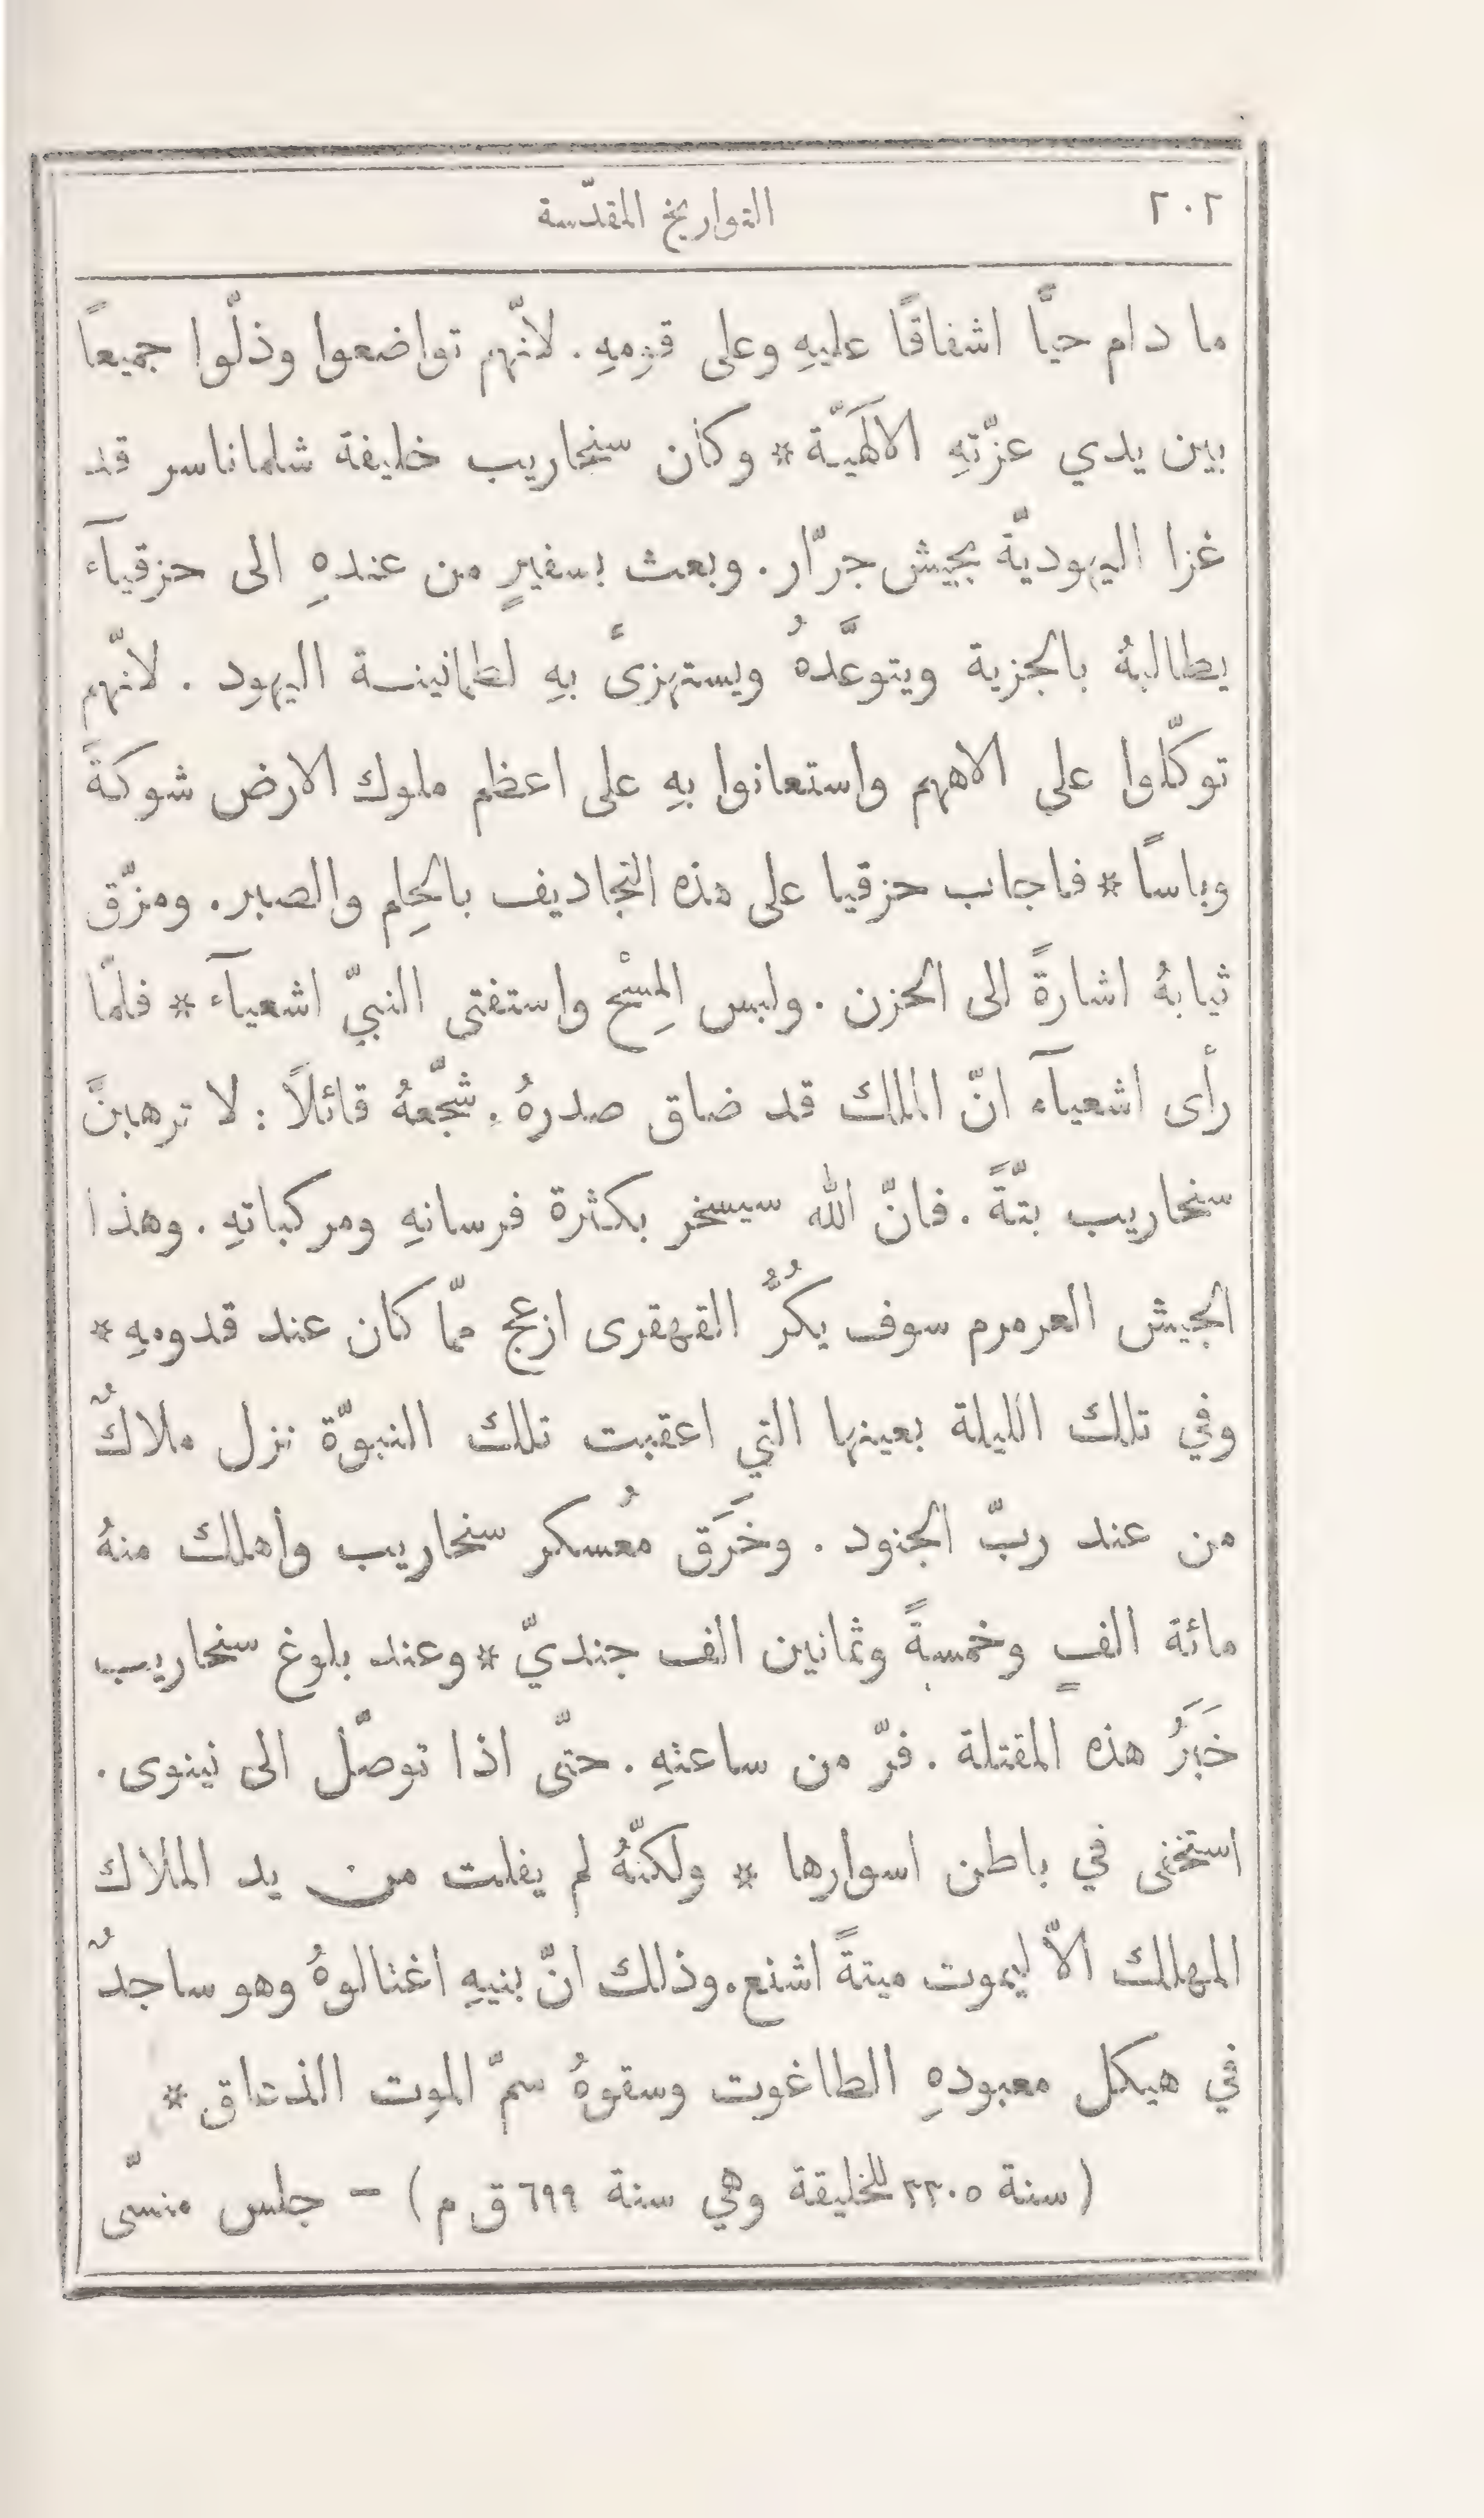 ٢٠٢ التواريخ المقدّسة
ما دام حيًّا اشفاقًا عليهِ وعلى قومهِ. لانّهم تواضعوا وذلّوا جميعًا
بين يدي عزّتهِ الالَهيَّة * وكان سنحاريب خليفة شلماناسر قد
غزا اليهوديّة بجيش جرّار. وبعث بسفيرٍ من عندهِ الى حزقيآء
يطالبهُ بالجزية ويتوعَّدهُ ويستهزئُ بهِ لطمانينة اليهود. لانّهم
توكّلوا على الاههم واستعانوا بهِ على اعظم ملوك الارض شوكةً
وباسًا * فاجاب حزقيا على هذه التجاديف بالحِلم والصبر. ومزّق
ثيابهُ اشارةً الى الحزن. ولبس المِسْح واستفتى النبيّ اشعيآء * فلمّا
رأى اشعيآء انّ الملك قد ضاق صدرهُ. شجّعهُ قائلاً: لا ترهبنَّ
سنحاريب بتّةً. فانّ الله سيسخر بكثرة فرسانهِ ومركباتهِ. وهذا
الجيش العرمرم سوف يكُرُّ القهقرى ازعج ممّا كان عند قدومهِ *
وفي تلك الليلة بعينها التي اعقبت تلك النبوّة نزل ملاكٌ
من عند ربّ الجنود. وخَرَق مُعسكر سنحاريب وأهلك منهُ
مائة الفٍ وخمسةً وثمانين الف جنديّ * وعند بلوغ سنحاريب
خَبَرُ هذه المقتلة. فرّ من ساعتهِ. حتّى اذا توصّل الى نينوى.
استخفى في باطن اسوارها * ولكنّهُ لم يفلت من يد الملاك
المهلك الاّ ليموت ميتةً اشنع. وذلك انّ بنيهِ اغتالوهُ وهو ساجدٌ
في هيكل معبودهِ الطاغوت وسقوهُ سمّ الموت الذعاق *
(سنة ٣٣٠٥ للخليقة وهي سنة ٦٩٩ ق م) – جلس منسّى